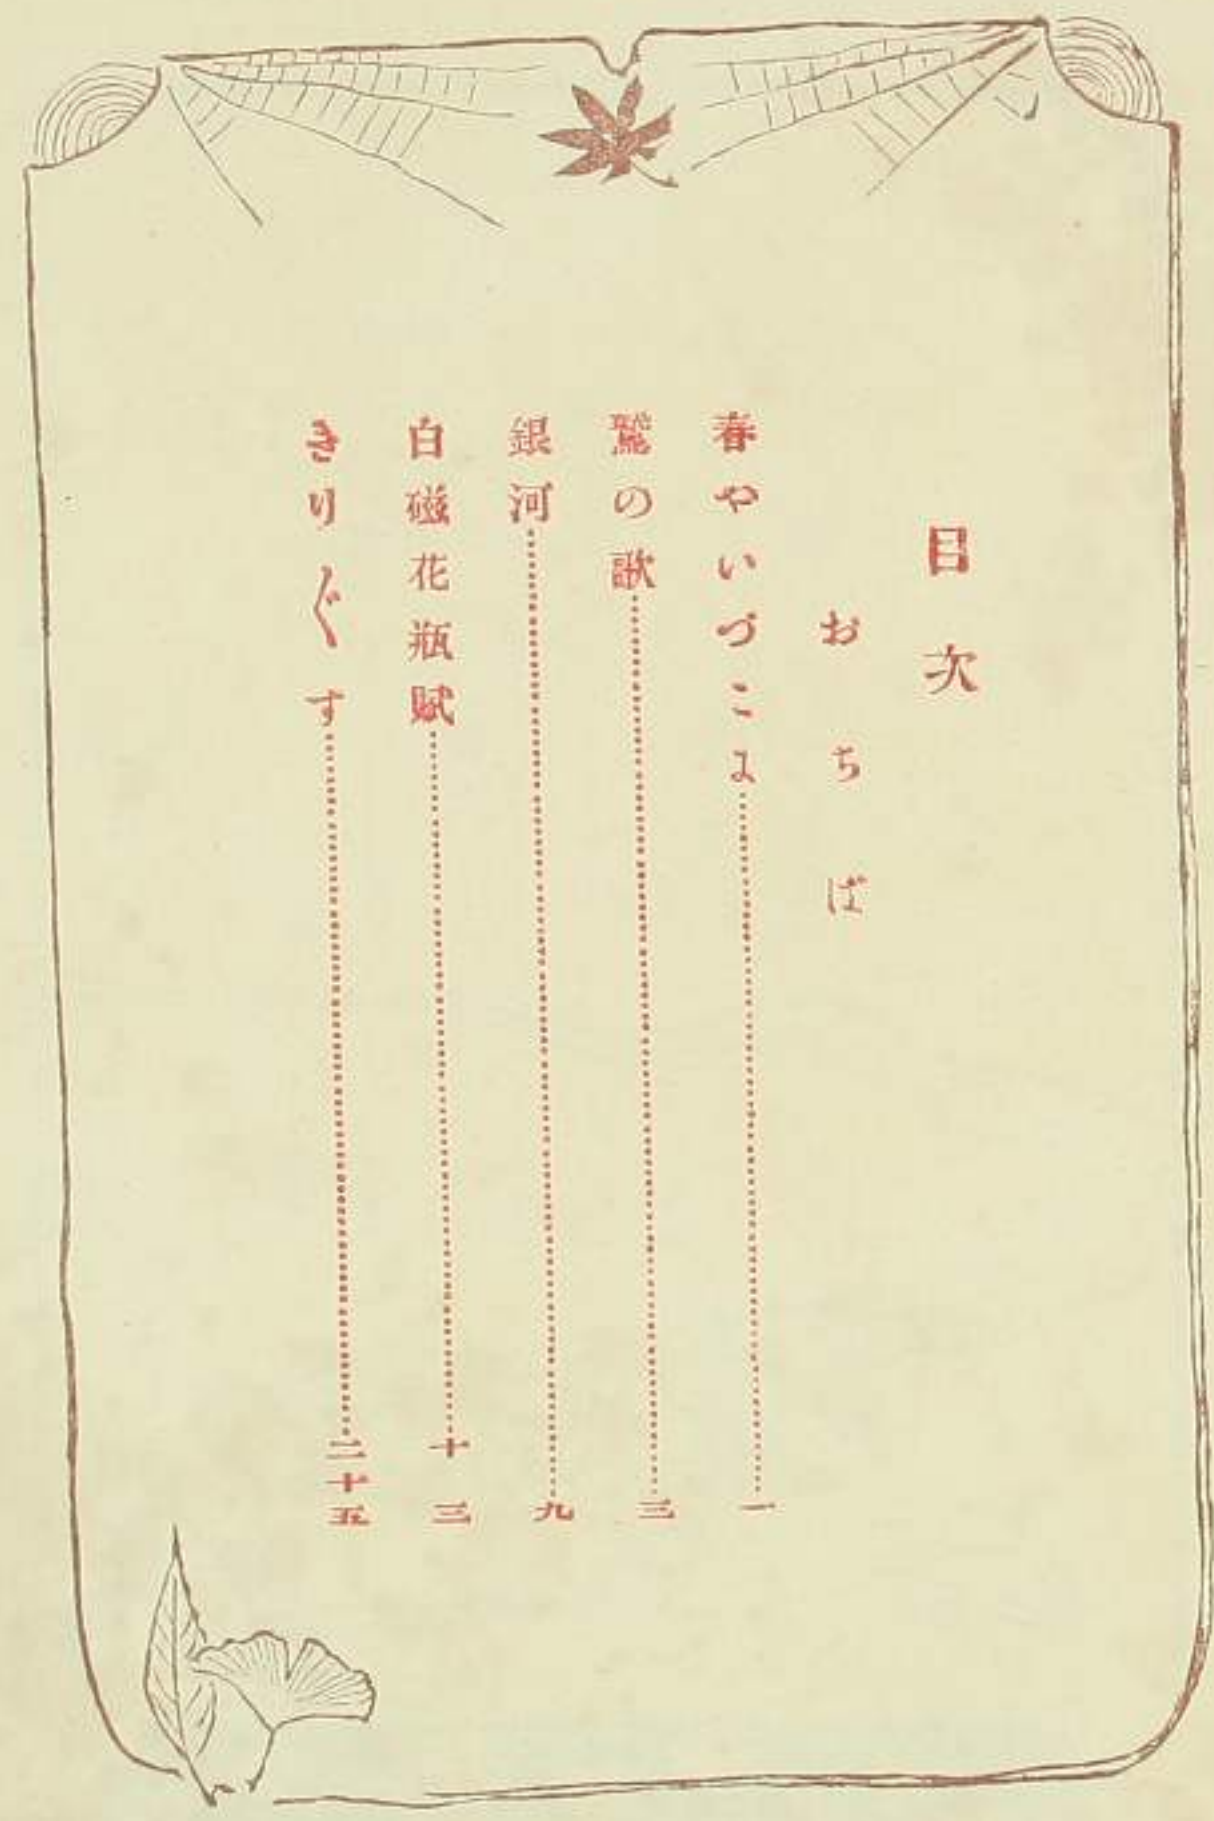 目次
おちば
春やいづこに……………一
鷲の歌……………三
銀河……………九
白磁花瓶賦……………十三
きり〲す……………二十五